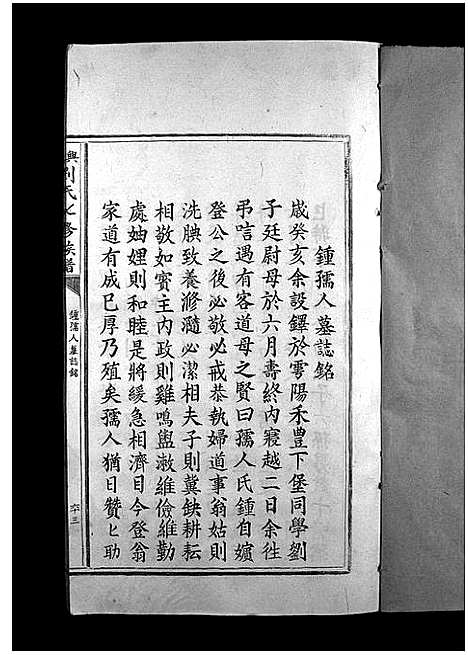 鍾孺人墓誌銘
歲癸亥余設鐸於雩陽禾豊下堡同學劉
子廷尉母於六月壽終內寢越二日余往
弔唁遇有客道母之賢曰孺人氏鍾自嬪
登公之後必敬必戒恭執婦道事翁姑則
洗腆致養滫瀡必潔相夫子則冀缺耕耘
相敬如賓主內政則雞鳴盥漱維儉維勤
處妯娌則和睦是將緩急相濟目今登翁
家道有成巳厚乃殖矣孺人猶日贊ヒ助
興劉氏七修族譜
鍾孺人墓誌銘
六三